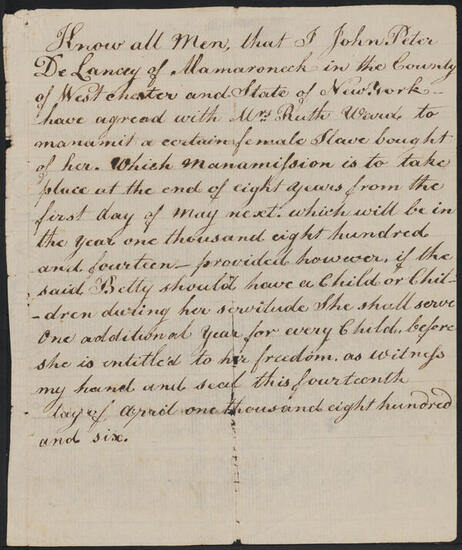 Know all Men, that I John Peter
De Lancey of Mamaroneck in the County
of Westchester and State of New York -
have agread with Mrs Ruth Ward, to
manumit a certain female Slave bought
of her. Which Manamission is to take
place at the end of eight years from the
first day of May next. which will be in
the Year one thousand eight hundred
and fourteen - provided however, if the
said Betty should have a Child or Chil-
-dren during her servitude She shall serve
One additional Year for every Child, before
she is entitled to her freedom, as witness
my hand and seal this fourteenth
day of April one thousand eight hundred
and six.